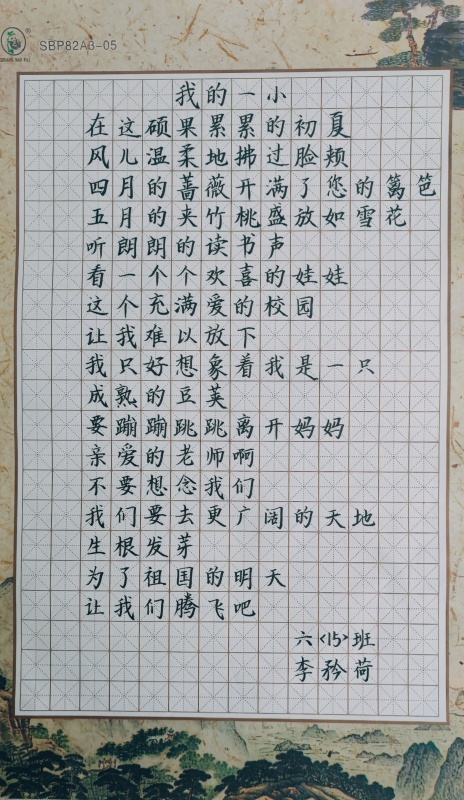 SBP82A3-05
我的一小
在这硕果累累的初夏
风儿温柔地拂过脸颊
四月的蔷薇开满了您的篱笆
五月的夹竹桃盛放如雪花
听朗朗的读书声
看一个个欢喜的娃娃
这个充满爱的校园
让我难以放下
我只好想象着我是一只
成熟的豆荚
要蹦蹦跳跳离开妈妈
亲爱的老师啊
不要想念我们
我们要去更广阔的天地
生根发芽
为了祖国的明天
让我们腾飞吧
六<15>班
李矜荷